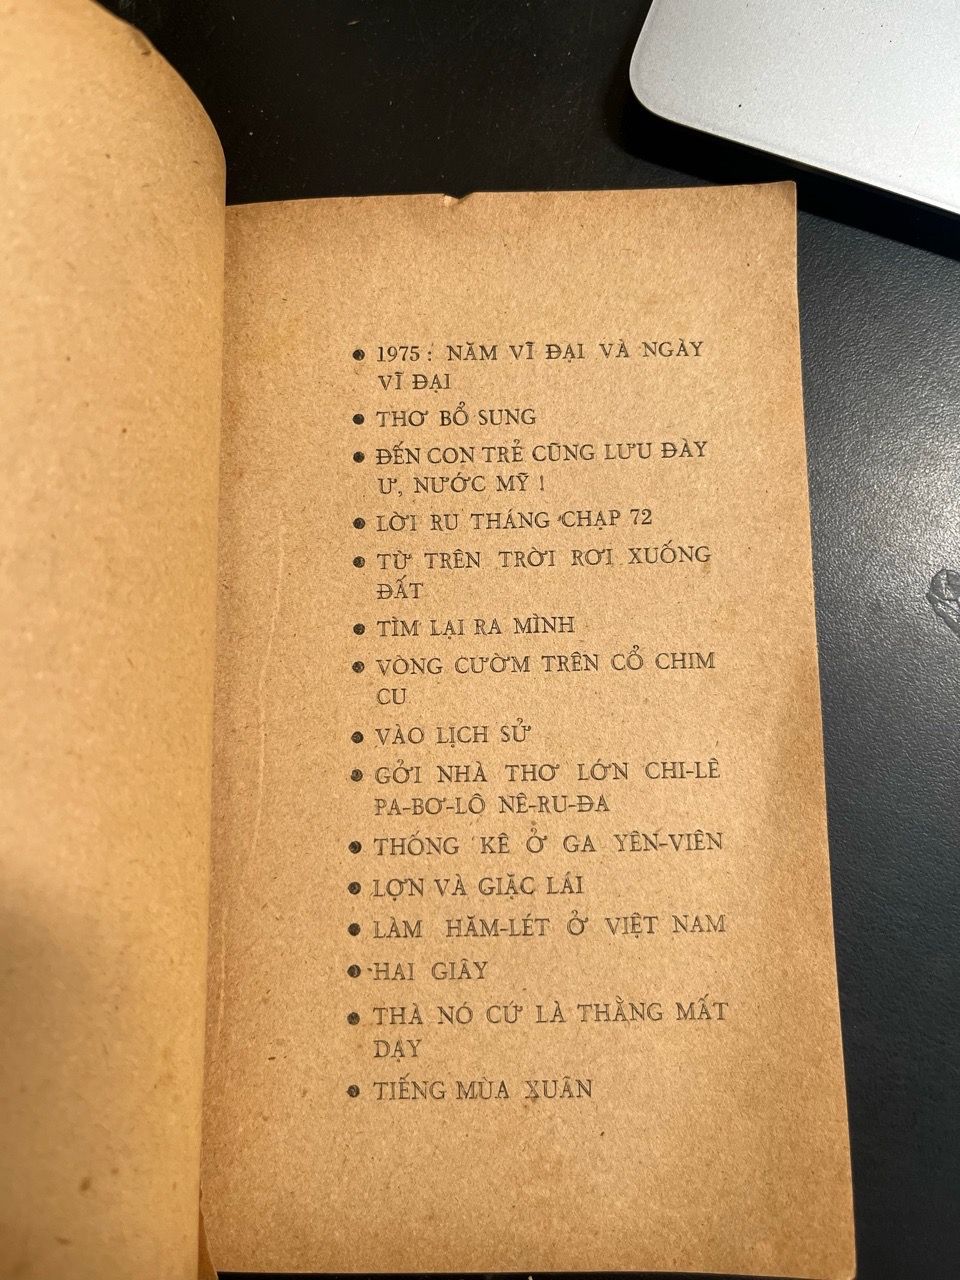 ● 1975 : NĂM VĨ ĐẠI VÀ NGÀY
VĨ ĐẠI
● THƠ BỔ SUNG
● ĐẾN CON TRẺ CŨNG LƯU ĐÀY
Ư, NƯỚC MỸ !
● LỜI RU THÁNG CHẠP 72
● TỪ TRÊN TRỜI RƠI XUỐNG
ĐẤT
● TÌM LẠI RA MÌNH
● VÒNG CƯỜM TRÊN CỔ CHIM
CU
● VÀO LỊCH SỬ
● GỞI NHÀ THƠ LỚN CHI-LÊ
PA-BƠ-LÔ NÊ-RU-ĐA
● THỐNG KÊ Ở GA YÊN-VIÊN
● LỢN VÀ GIẶC LÁI
● LÀM HĂM-LÉT Ở VIỆT NAM
● HAI GIÂY
● THÀ NÓ CỨ LÀ THẰNG MẤT
DẠY
● TIẾNG MÙA XUÂN